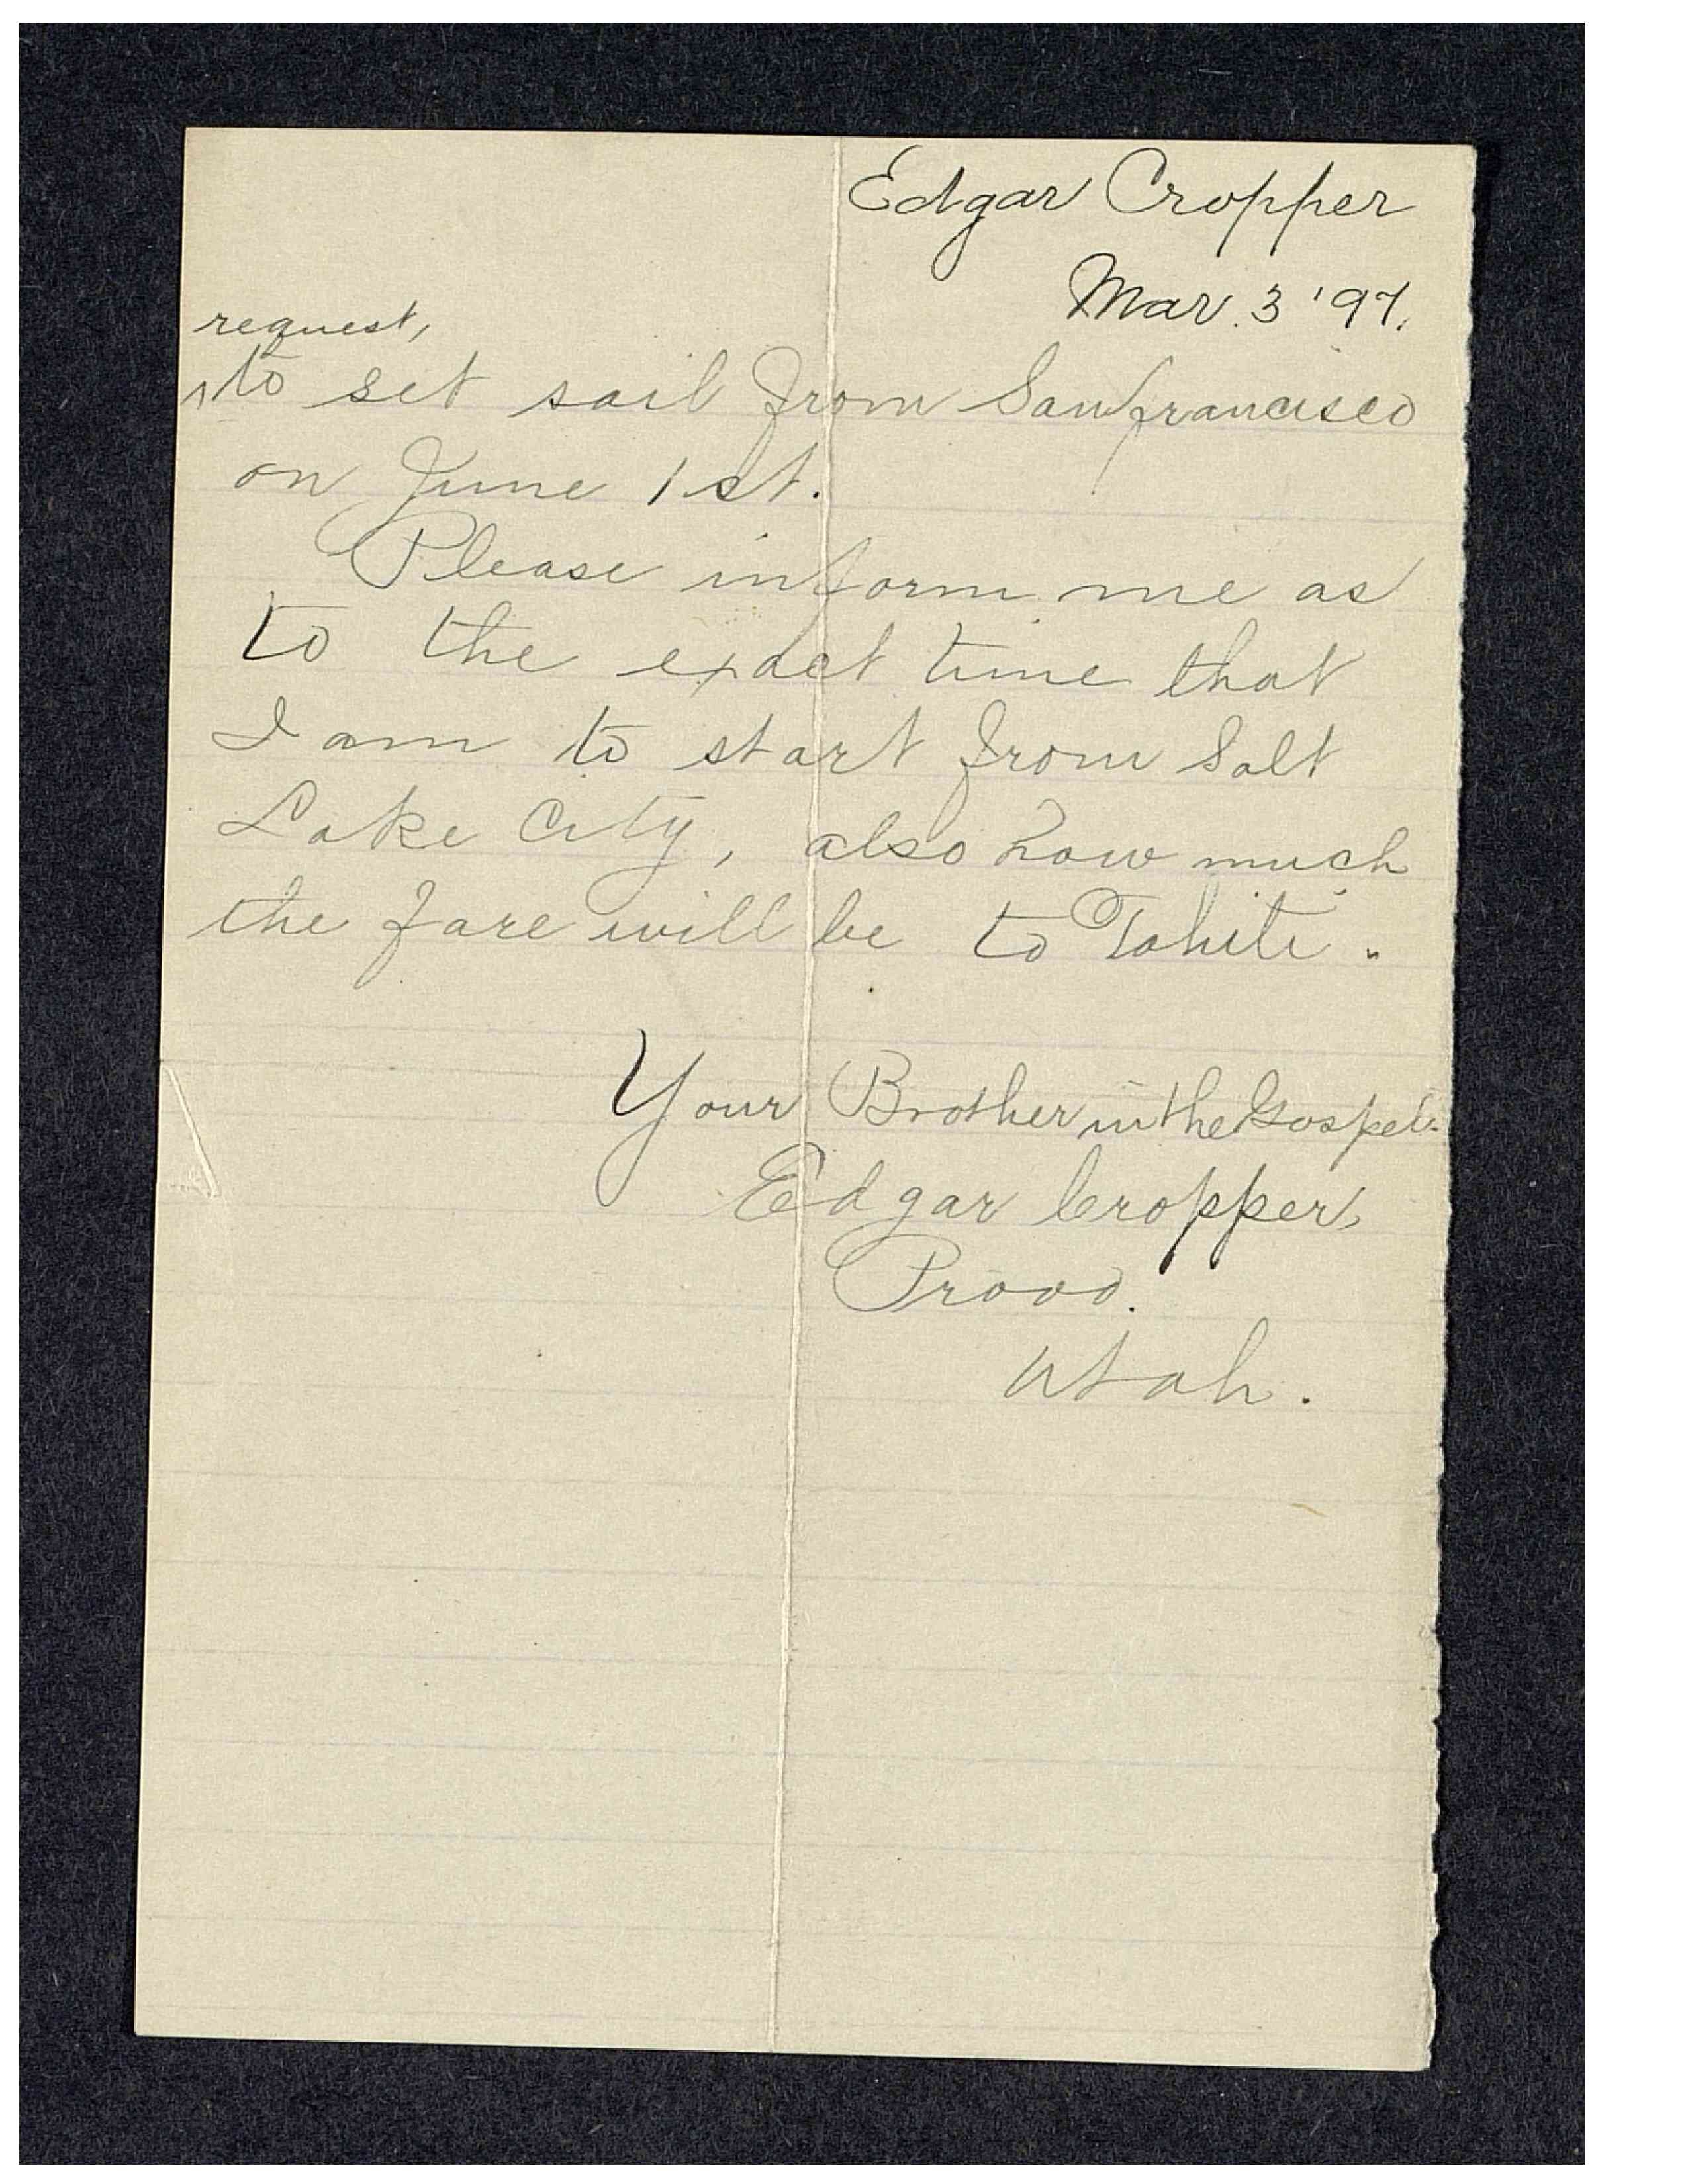 Edgar Cropper
Mar. 3 '97.
request,
^to set sail from Sanfrancisco
on June 1st.
Please inform me as
to the exact time that
I am to start from Salt
Lake City, also how much
the fare will be to Tahiti.
Your Brother in the Gospel.
Edgar Cropper,
Provo.
Utah.